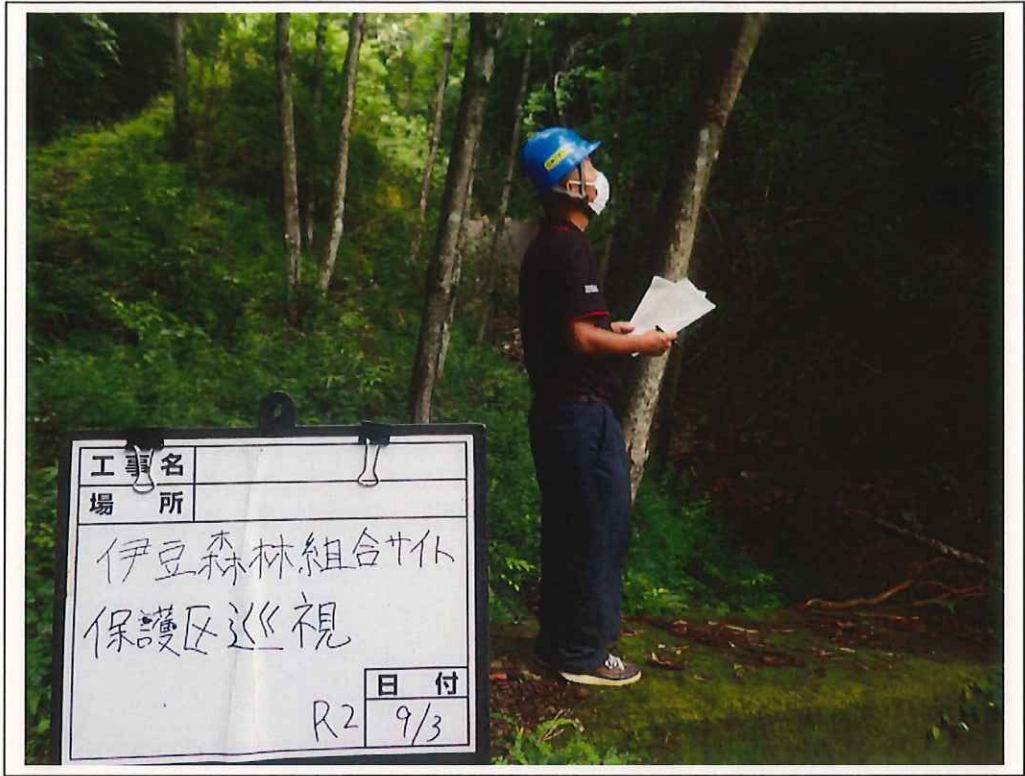 工事名
場 所
伊豆森林組合サイト
保護区巡視
日 付
R2 9/3